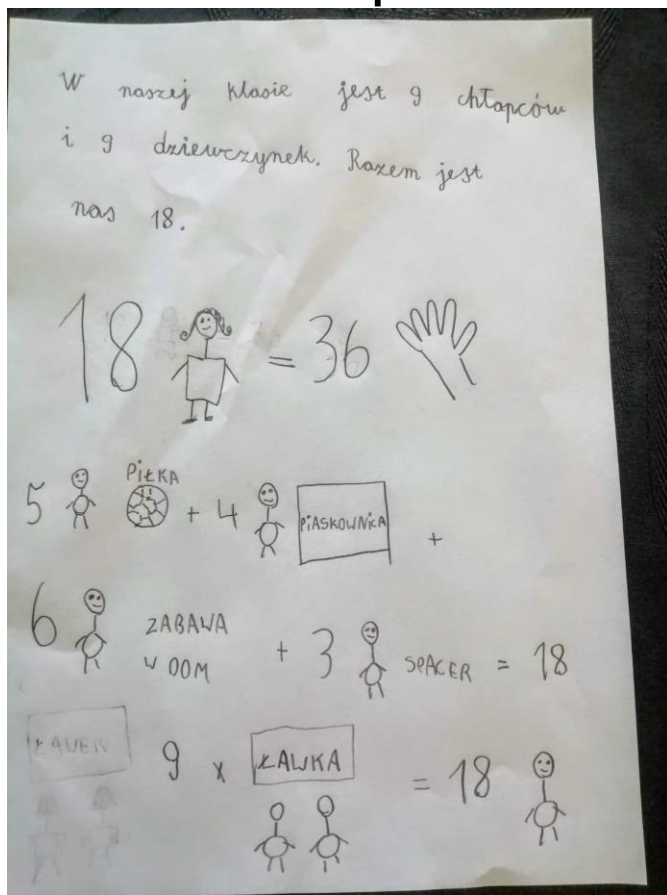 W naszej klasie jest 9 chłopców
i 9 dziewczynek. Razem jest
nas 18.
18 = 36
PIŁKA
5 + 4 PIASKOWNICA +
6 ZABAWA
W DOM + 3 SPACER = 18
ŁAWEK 9 x ŁAWKA = 18